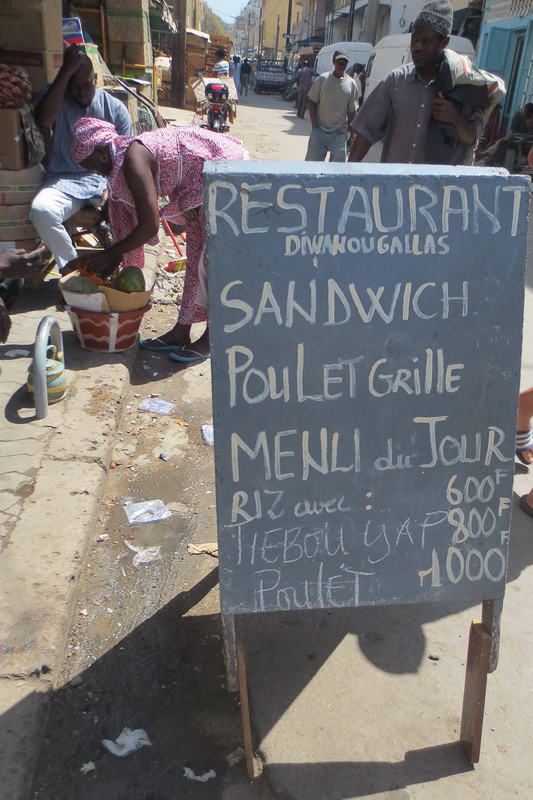 RESTAURANT
DIWANOUGALLAS
SANDWICH
POULET GRILLE
MENU du JOUR
RIZ avec : 600F
TIEBOU YAP 800F
POULET 1000F